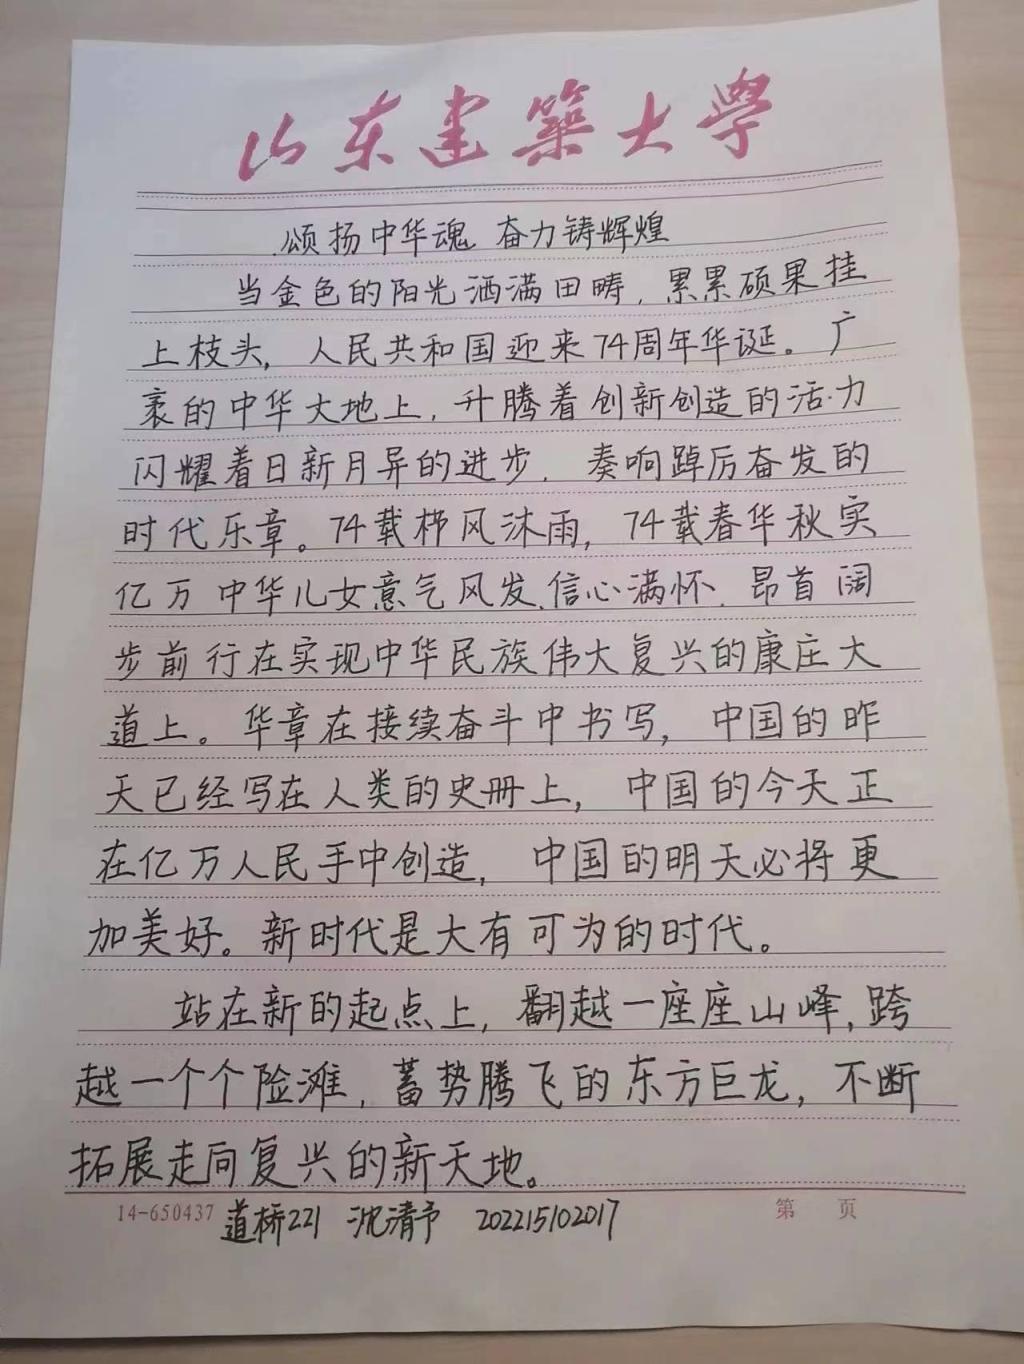 山东建築大學
颂扬中华魂 奋力铸辉煌
当金色的阳光洒满田畴，累累硕果挂
上枝头，人民共和国迎来74周年华诞。广
袤的中华大地上，升腾着创新创造的活力
闪耀着日新月异的进步，奏响踔厉奋发的
时代乐章。74载栉风沐雨，74载春华秋实
亿万中华儿女意气风发、信心满怀，昂首阔
步前行在实现中华民族伟大复兴的康庄大
道上。华章在接续奋斗中书写，中国的昨
天已经写在人类的史册上，中国的今天正
在亿万人民手中创造，中国的明天必将更
加美好。新时代是大有可为的时代。
站在新的起点上，翻越一座座山峰，跨
越一个个险滩，蓄势腾飞的东方巨龙，不断
拓展走向复兴的新天地。
14-650437 道桥221 沈清予 202215102017 第 页